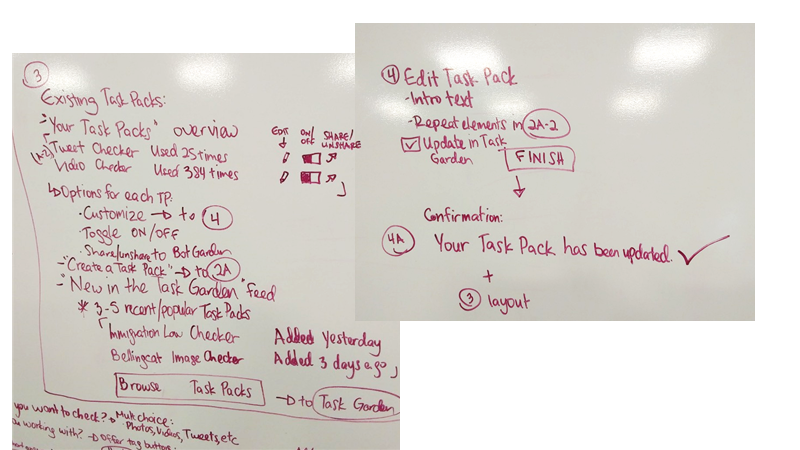 3
Existing Task Packs:
- "Your Task Packs" overview
EDIT ON/OFF SHARE/UNSHARE
Tweet Checker Used 25 times
Video Checker Used 384 times
↳ Options for each TP:
· Customize → to 4
· Toggle ON/OFF
· Share/unshare to BotGarden
- "Create a Task Pack" → to 2A
- "New in the Task Garden" feed
* 3-5 recent/popular Task Packs
Immigration Law Checker Added Yesterday
Bellingcat Image Checker Added 3 days ago
Browse Task Packs → to Task Garden
you want to check? → Mult choice:
Photos, Videos, Tweets, etc
working with? → Offer tag buttons:
4 Edit Task Pack
- Intro text
- Repeat elements in 2A-2
☑ Update in Task
Garden FINISH
↓
Confirmation:
4A Your Task Pack has been updated. ✓
+
3 layout